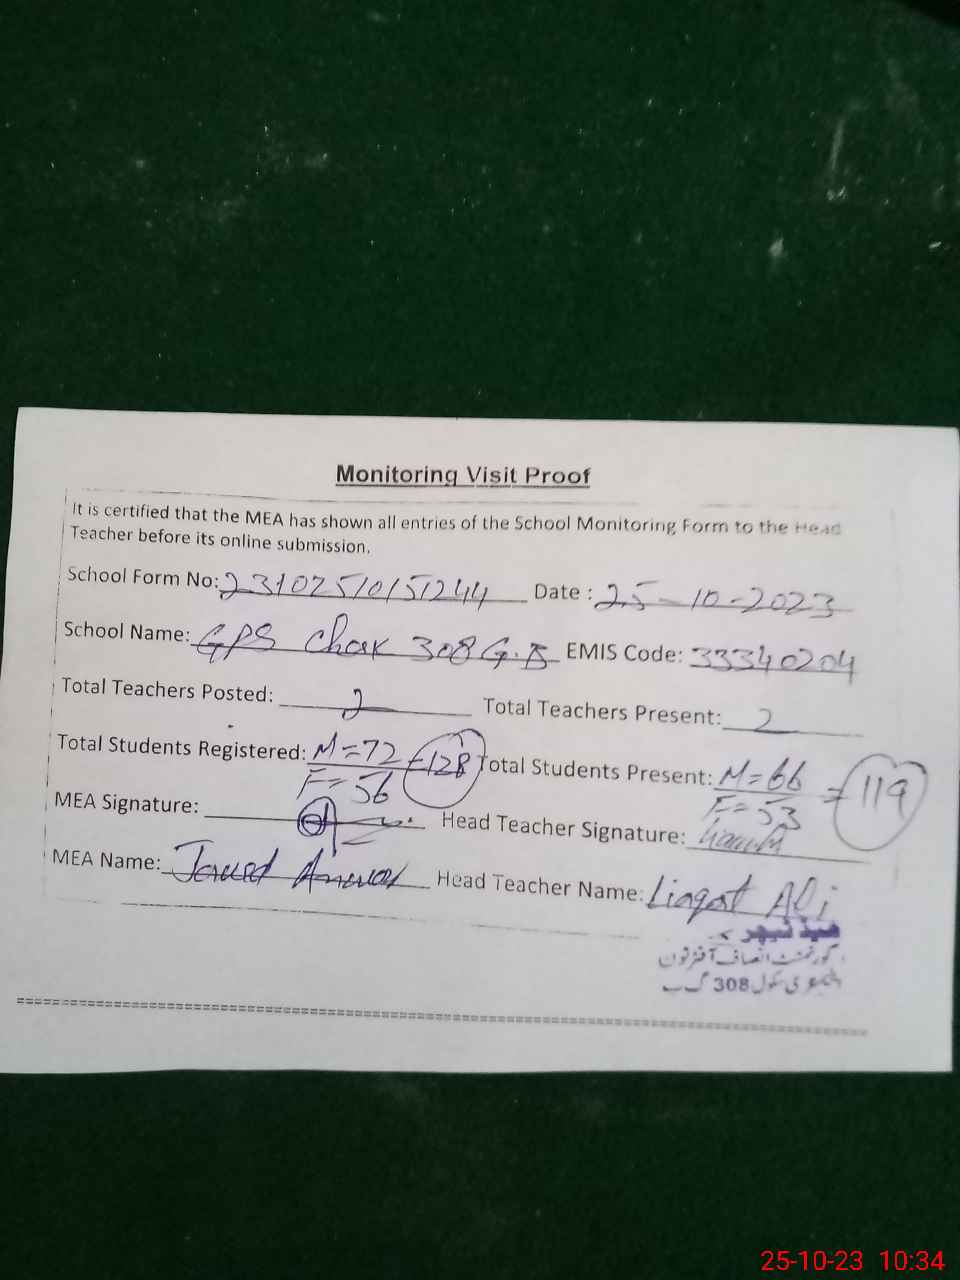 Monitoring Visit Proof
It is certified that the MEA has shown all entries of the School Monitoring Form to the Head
Teacher before its online submission.
School Form No: 23102510151244 Date : 25-10-2023
School Name: GPS Chak 308 G.B EMIS Code: 33340204
Total Teachers Posted: 2 Total Teachers Present: 2
Total Students Registered: M=72 =128 Total Students Present: M=66 =119
F=56 F=53
MEA Signature: Head Teacher Signature:
MEA Name: Javed Anwar Head Teacher Name: Liaqat Ali
ہیڈ ٹیچر
گورنمنٹ انصاف آفٹرنون
ایلیمنٹری سکول 308 گ ب
25-10-23 10:34